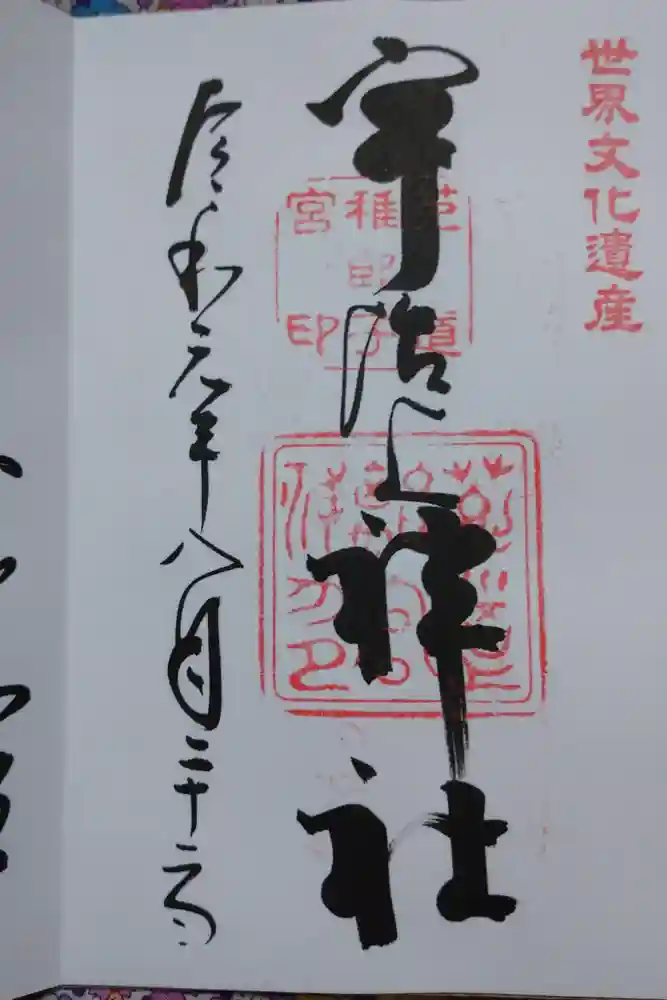 世界文化遺産
宇治上神社
菟道
稚郎子
宮印
令和元年八月二十二日